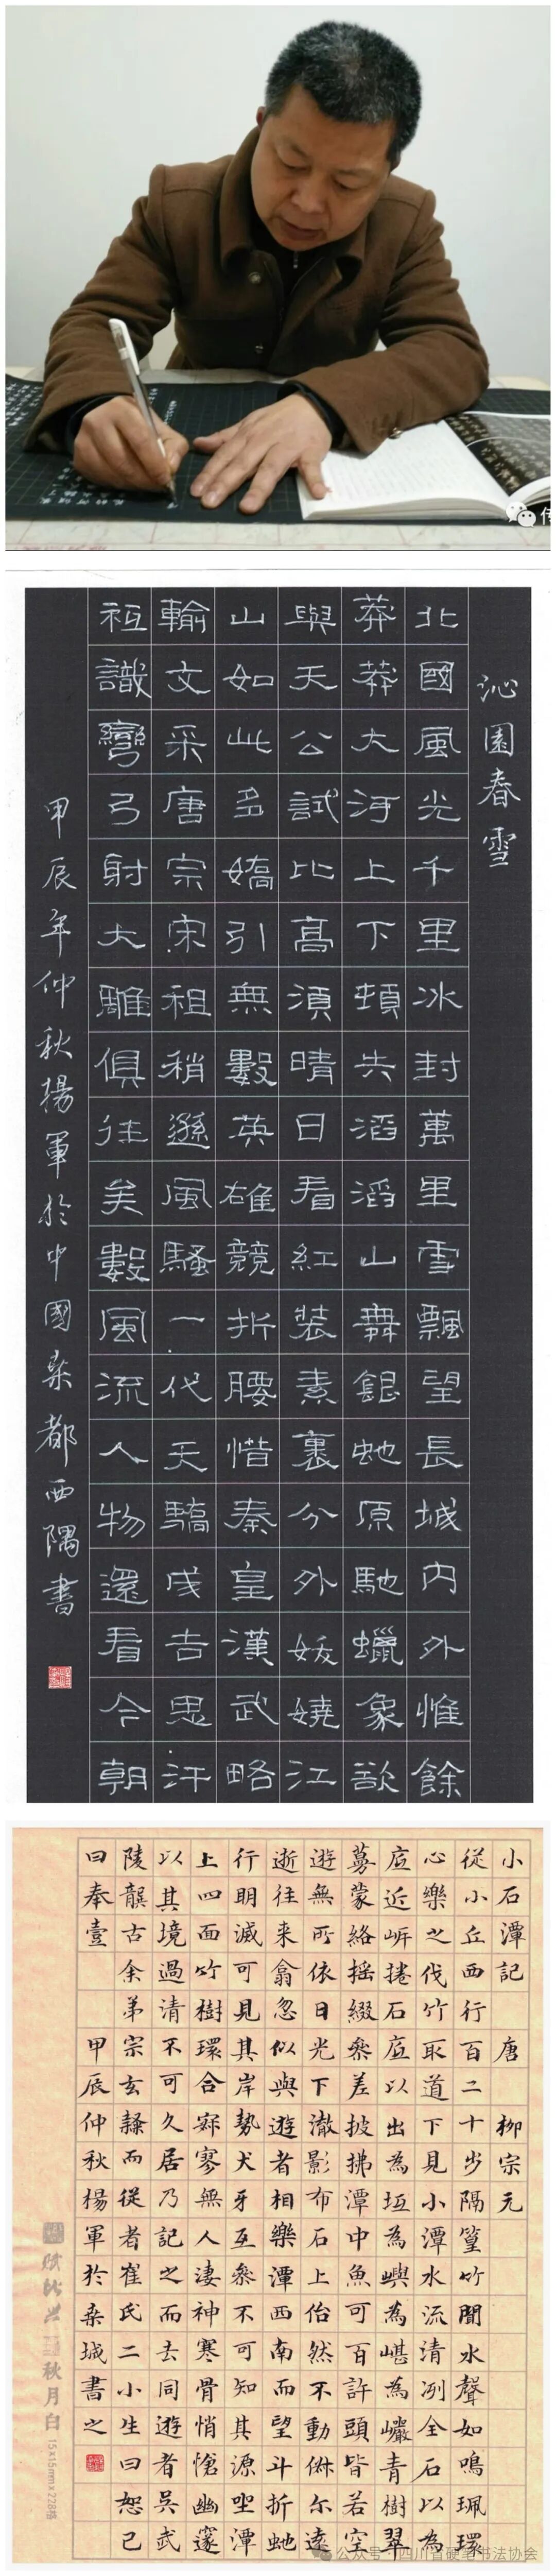 沁園春雪
北國風光千里冰封萬里雪飄望長城内外惟餘
莽莽大河上下頓失滔滔山舞銀蛇原馳蠟象欲
與天公試比高須晴日看紅裝素裹分外妖嬈江
山如此多嬌引無數英雄競折腰惜秦皇漢武略
輸文采唐宗宋祖稍遜風騷一代天驕成吉思汗
祗識彎弓射大雕俱往矣數風流人物還看今朝
甲辰年仲秋揚軍於中國桒都西隅書
小石潭記 唐 柳宗元
從小丘西行百二十步隔篁竹聞水聲如鳴珮環
心樂之伐竹取道下見小潭水流清冽全石以為
底近岸捲石底以出為坻為嶼為嵁為巖青樹翠
蔓蒙絡摇綴參差披拂潭中魚可百許頭皆若空
遊無所依日光下澈影布石上佁然不動俶尔遠
逝往来翕忽似與遊者相樂潭西南而望斗折蛇
行明滅可見其岸勢犬牙互參不可知其源坐潭
上四面竹樹環合寂寥無人凄神寒骨悄愴幽邃
以其境過清不可久居乃記之而去同遊者吴武
陵龔古余弟宗玄隸而從者崔氏二小生曰恕己
曰奉壹 甲辰仲秋楊軍於桒城書之
秋月白 15x15mm×228格
公众号·四川省硬笔书法协会